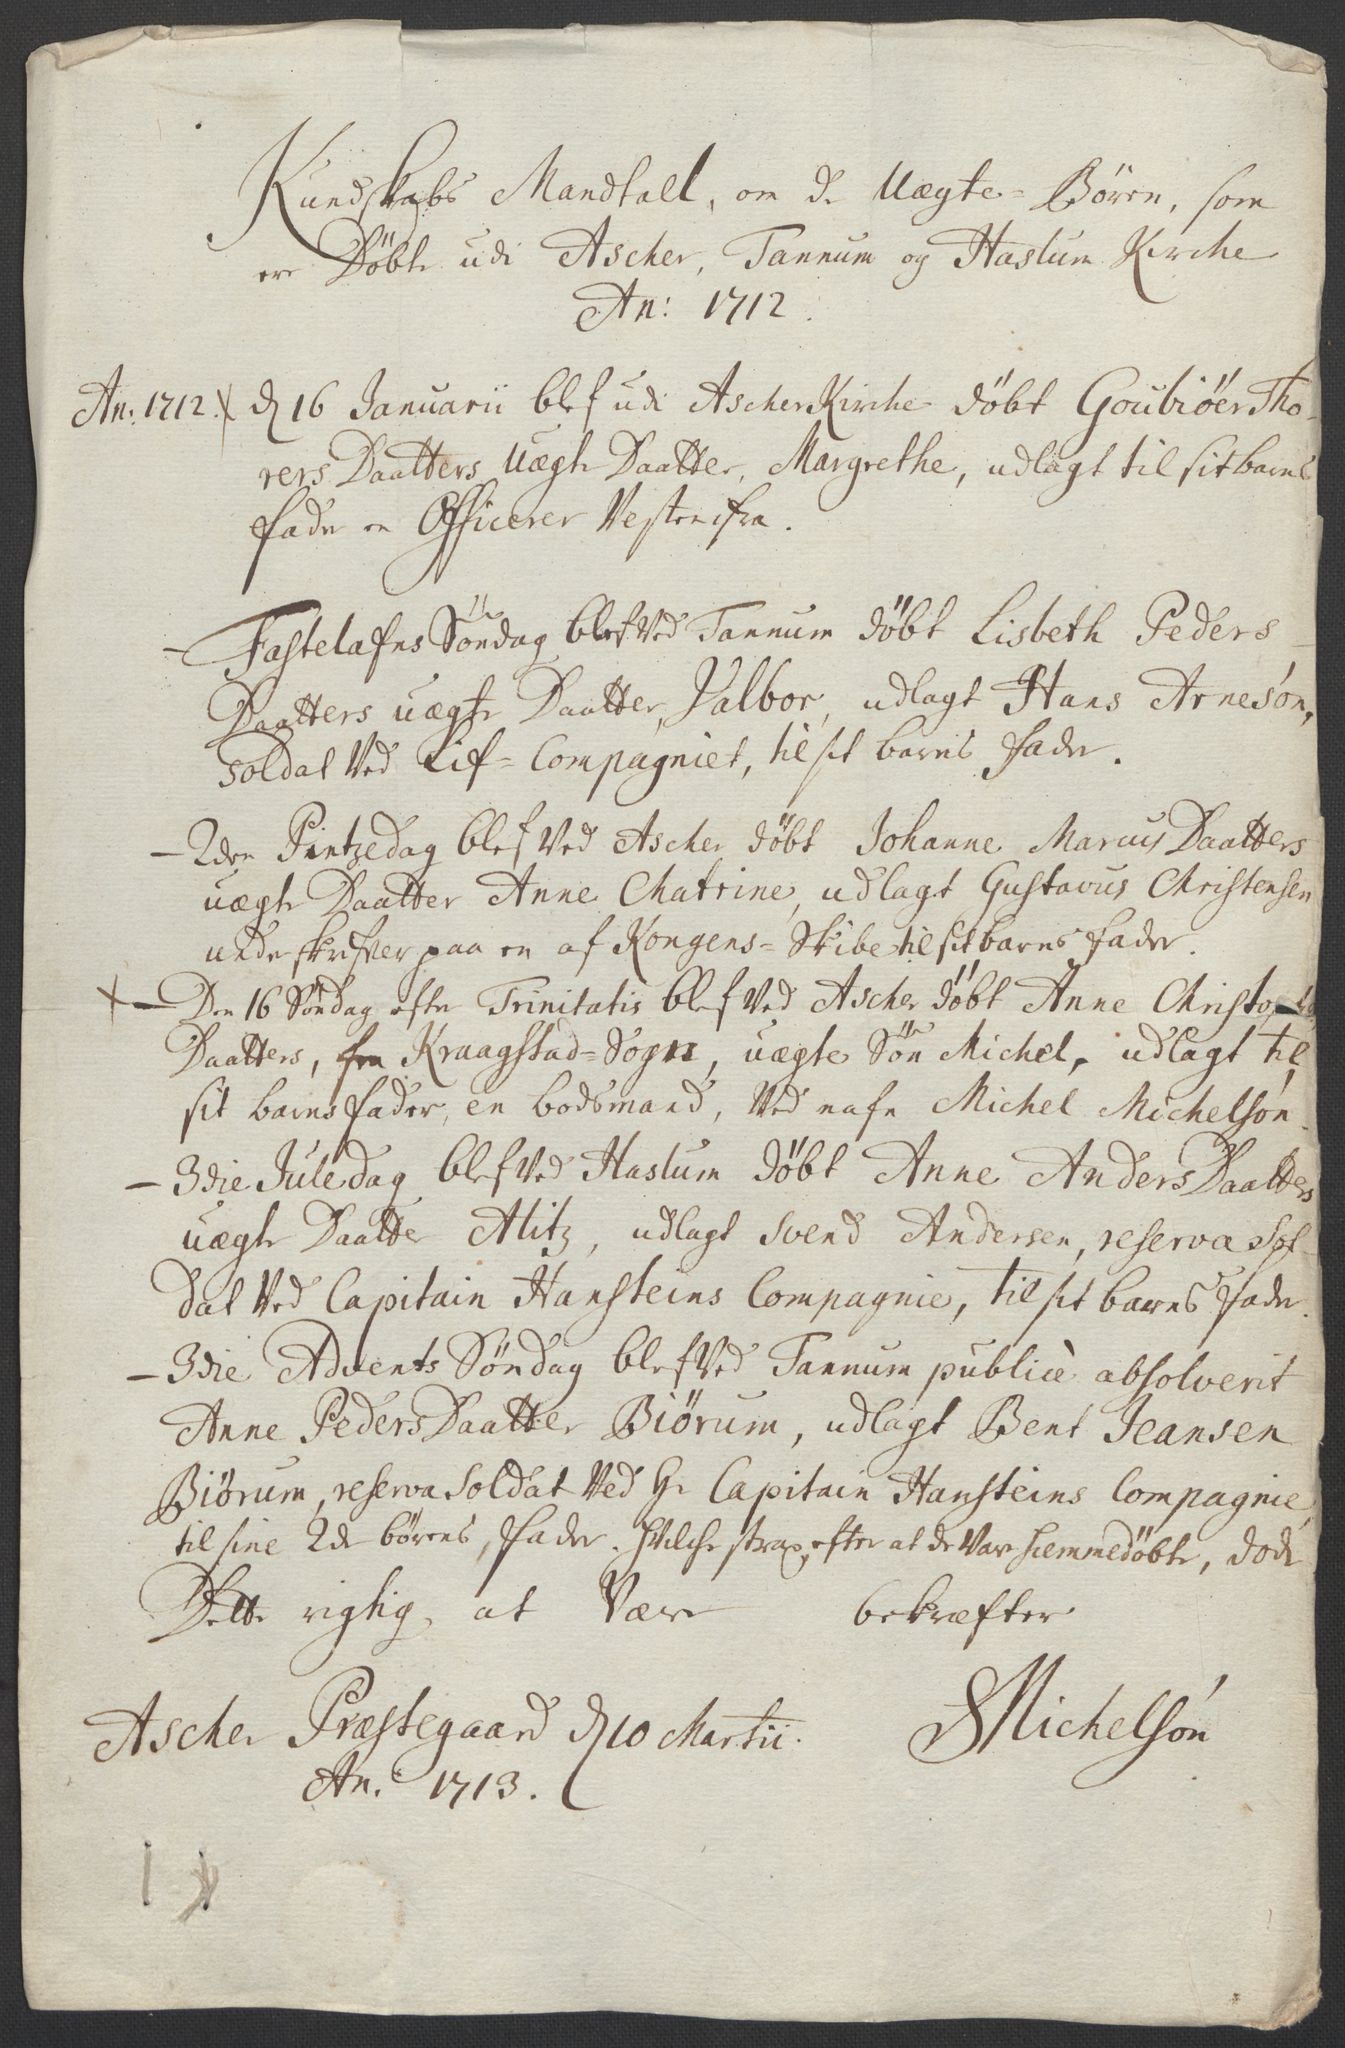 Kundskabs Mandtall, om de Uægte-Børen, som
ere Døbte udi Ascher, Tannum og Haslum Kirche
An: 1712.
An: 1712. d 16 Januarii blef udi Ascher Kirche døbt Goubiöer Tho-
rers Daatters Uægte Daatter, Margrethe, udlagt til sit barns
fader en Officerer Vestenifra.
- Fastelafns Søndag blef Ved Tannum døbt Lisbeth Peders
Daatters uægte Daatter, Valbor, udlagt Hans Arnesøn,
soldat Ved Lif-Compagniet, til sit barns fader.
- 2den Pintzedag blef Ved Ascher døbt Johanne Marcus Daatters
uægte Daatter Anne Chatrine, udlagt Gustavus Christensen
underskrifver paa en af Kongens-Skibe til sit barns fader.
- Den 16 Søndag efter Trinitatis blef Ved Ascher døbt Anne
Daatters, fra Kraagstad-Sogn, uægte Søn Michel, udlagt til
sit barns fader, en bodsmand, Ved nafn Michel Michelsøn.
- 3die Juledag blef Ved Haslum døbt Anne Anders Daatters
uægte Daatter Alitz, udlagt Svend Andersen, reserva Sol-
dat Ved Capitain Hansteins Compagnie, til sit barns fader.
- 3die Advents Søndag blef Ved Tannum publicè absolverit
Anne Peders Daatter Biørum, udlagt Bent Jeansen
Biørum, reserva Soldat Ved Hr Capitain Hansteins Compagnie,
til sine 2de børens fader. hvilche strax, efter at de Var hiemmedøbte, døde
Dette rigtig at Være bekræfter
Ascher Præstegaard d 10 Martii. SMichelsøn
An. 1713.